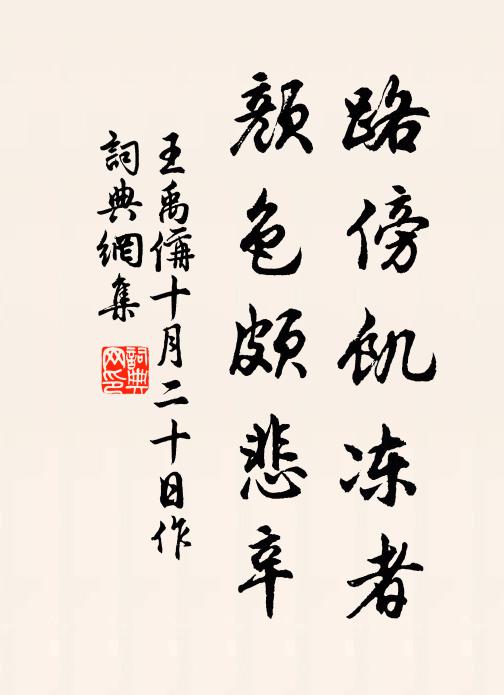 路傍飢凍者
顔色頗悲辛
王禹偁十月二十日作
詞典網集
詞典网印